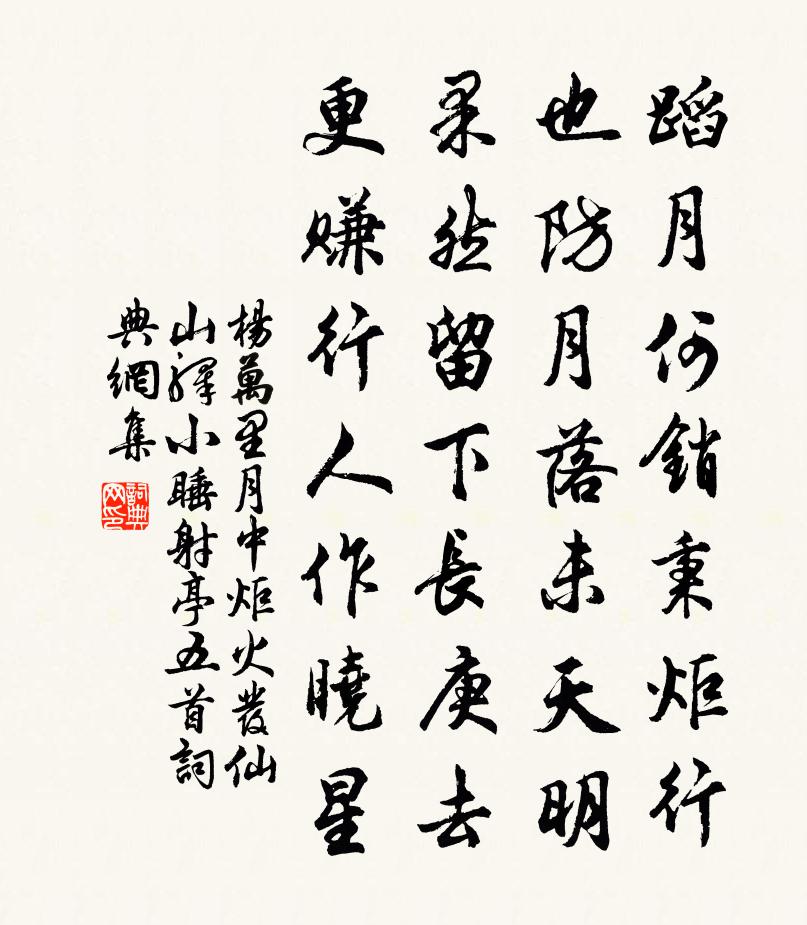 蹈月何銷秉炬行
也防月落未天明
果然留下長庚去
更賺行人作曉星
楊萬里月中炬火發仙
山驛小睡射亭五首詞
典網集
詞典
网印